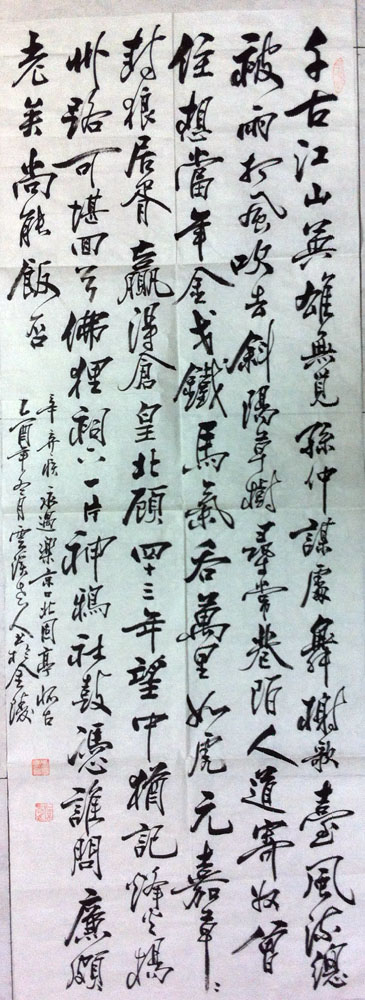 千古江山英雄無覓孫仲謀處舞榭歌臺風流總
被雨打風吹去斜陽草樹尋常巷陌人道寄奴曾
住想當年金戈鐵馬氣吞萬里如虎元嘉草々
封狼居胥贏得倉皇北顧四十三年望中猶記烽火揚
州路可堪回首佛狸祠下一片神鴉社鼓憑誰問廉頗
老矣尚能飯否
辛弃疾永遇樂京口北固亭怀古
乙酉年冬月雲溪老人書於金陵